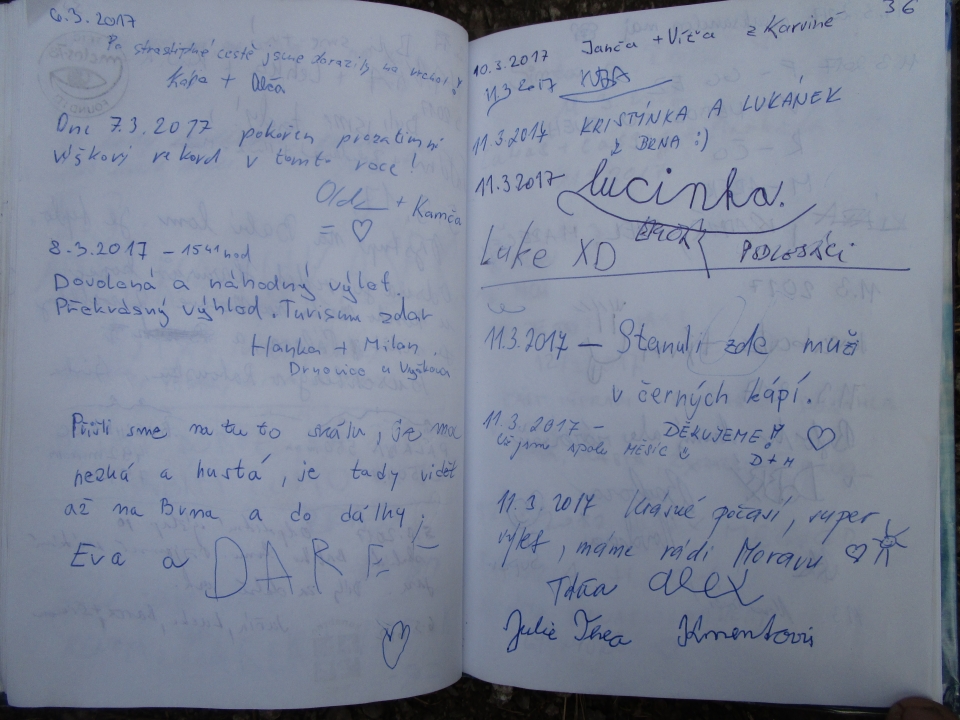 6.3.2017
Po strastiplné cestě jsme dorazily na vrchol!
Kája +
Dne 7.3.2017 pokořen prozatimní
výškový rekord v tomto roce!
Olda + Kamča
= ♡
8.3.2017 - 15 41 hod
Dovolená a náhodný výlet.
Překrásný výhled. Turismu zdar
Hanka + Milan
Drnovice u Vyškova
Přišli sme na tu to skálu, je moc
hezká a hustá, je tady vidět
až na Brna a do dálky!
Eva a DAREK
♡
36
10.3.2017 Janča + Víťa z Karviné
11.3.2017 KUBA
11.3.2017 KRISTÝNKA A LUKÁNEK
z BRNA :)
11.3.2017 lucinka.
Luke XD PODLESÁCI
11.3.2017 - Stanuli zde muži
v černých kápí.
11.3.2017 - DĚKUJEME!! ♡
Už jsme spolu MĚSÍC D+M
11.3.2017 Krásné počasí, super
výlet, máme rádi Moravu ♡
Táňa alex
Julie Terea Kmentovi